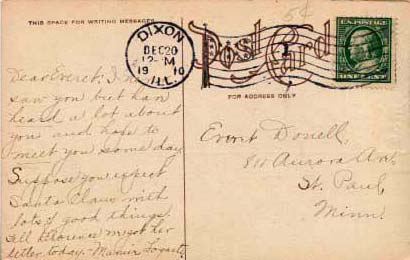 THIS SPACE FOR WRITING MESSAGES
5¢
DIXON
DEC 20
12-M
1910
ILL.
Post Card
U.S. POSTAGE
ONE CENT
FOR ADDRESS ONLY
Dear Everet, I
saw you but han
heard a lot about
you and hope to
meet you some day
Suppose you expect
Santa Claus with
lots of good things.
Tell Florence got her
letter today.
Everet Donell,
811 Aurora Ave.
St. Paul,
Minn